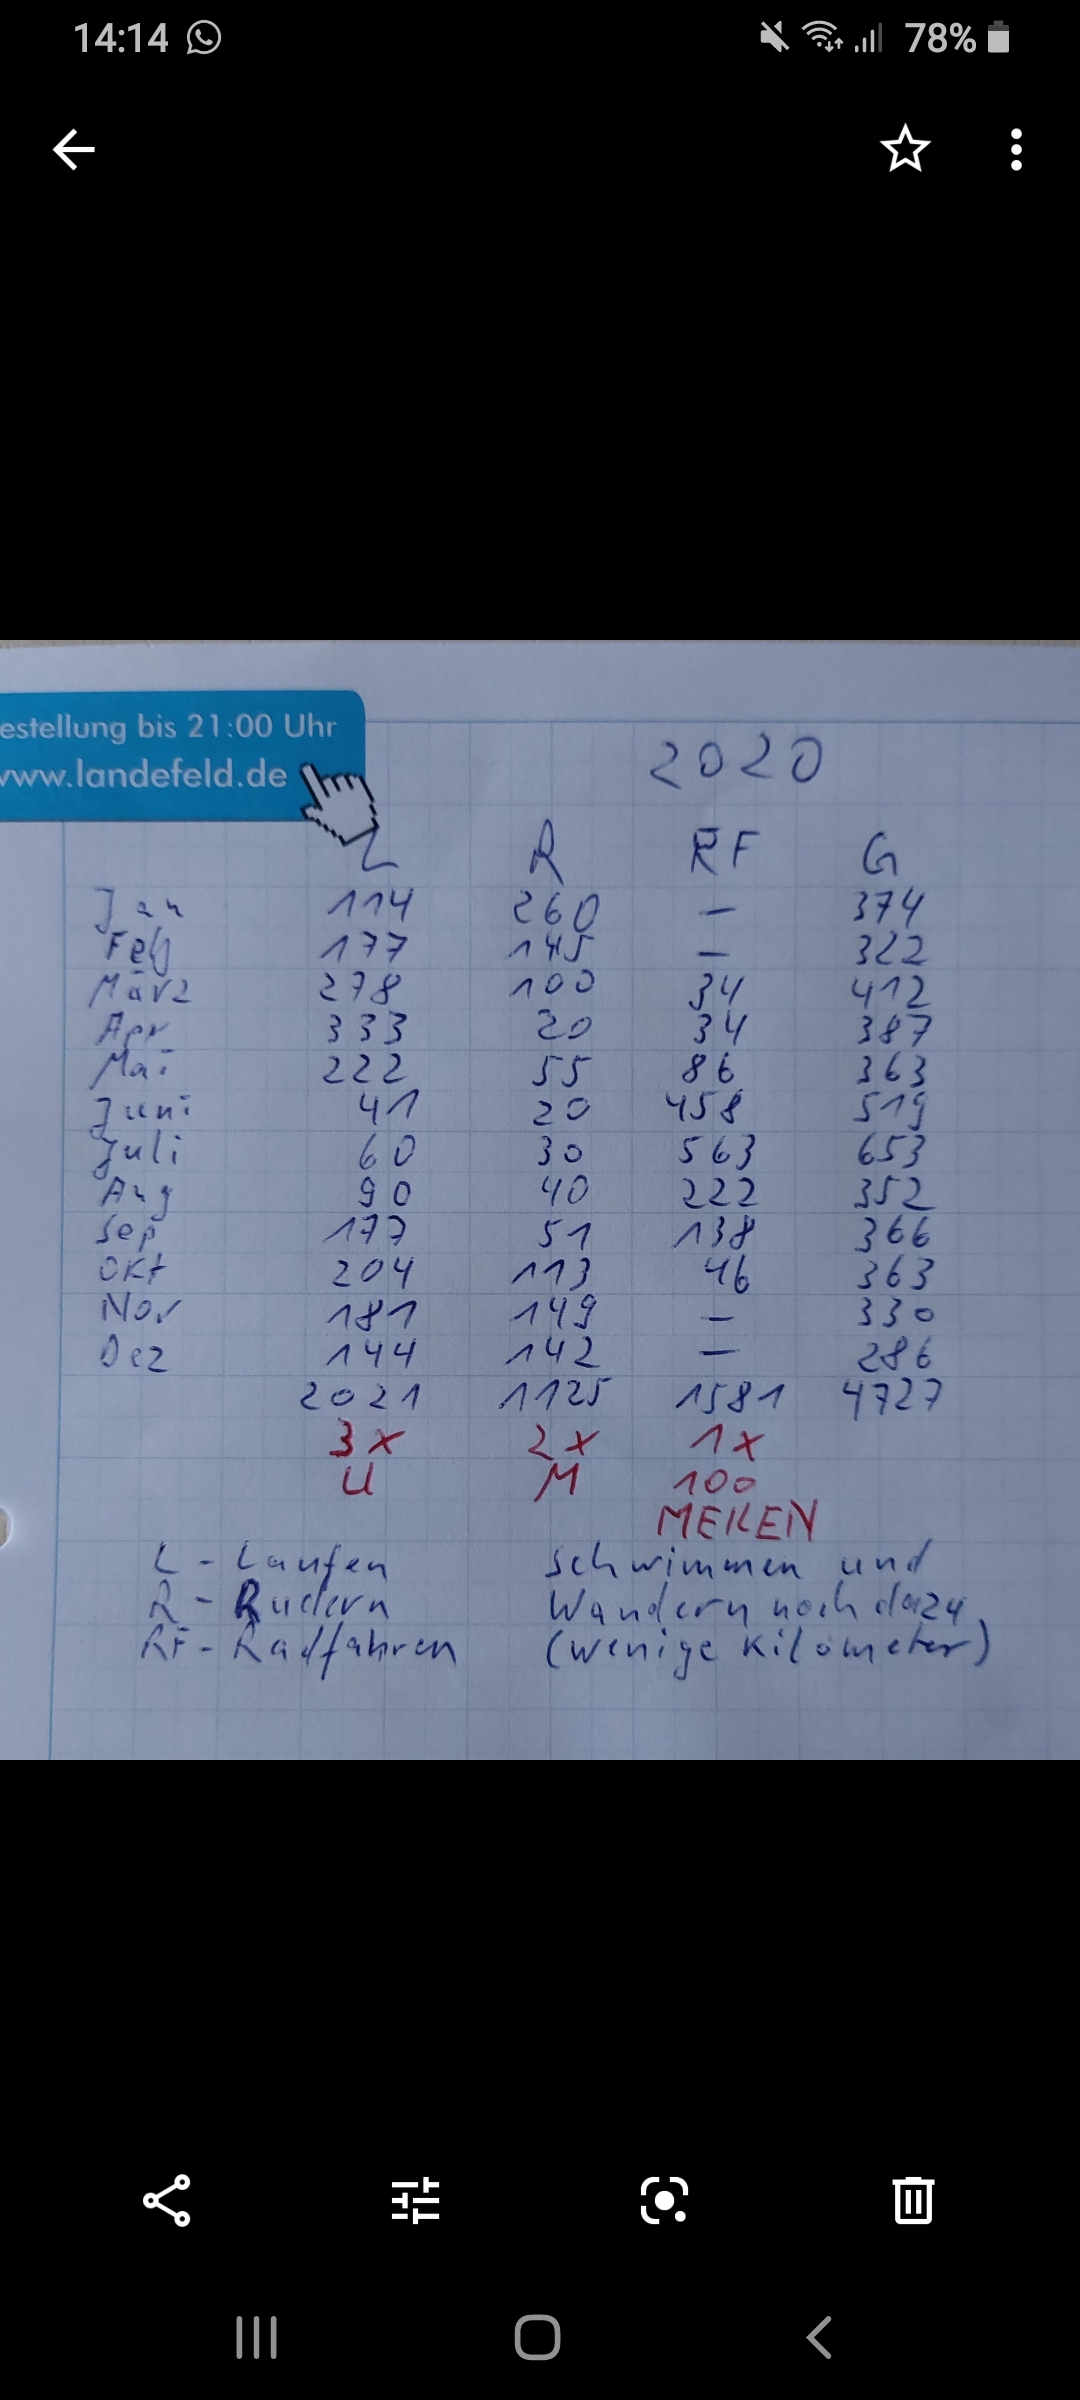 14:14 78%
estellung bis 21:00 Uhr
www.landefeld.de
2020
L R RF G
Jan 114 260 – 374
Feb 177 145 – 322
März 278 100 34 412
Apr 333 20 34 387
Mai 222 55 86 363
Juni 41 20 458 519
Juli 60 30 563 653
Aug 90 40 222 352
Sep 177 51 138 366
Okt 204 113 46 363
Nov 181 149 – 330
Dez 144 142 – 286
2021 1125 1581 4727
3x 2x 1x
U M 100
MEILEN
L - Laufen Schwimmen und
R - Rudern Wandern noch dazu
RF - Radfahren (wenige Kilometer)